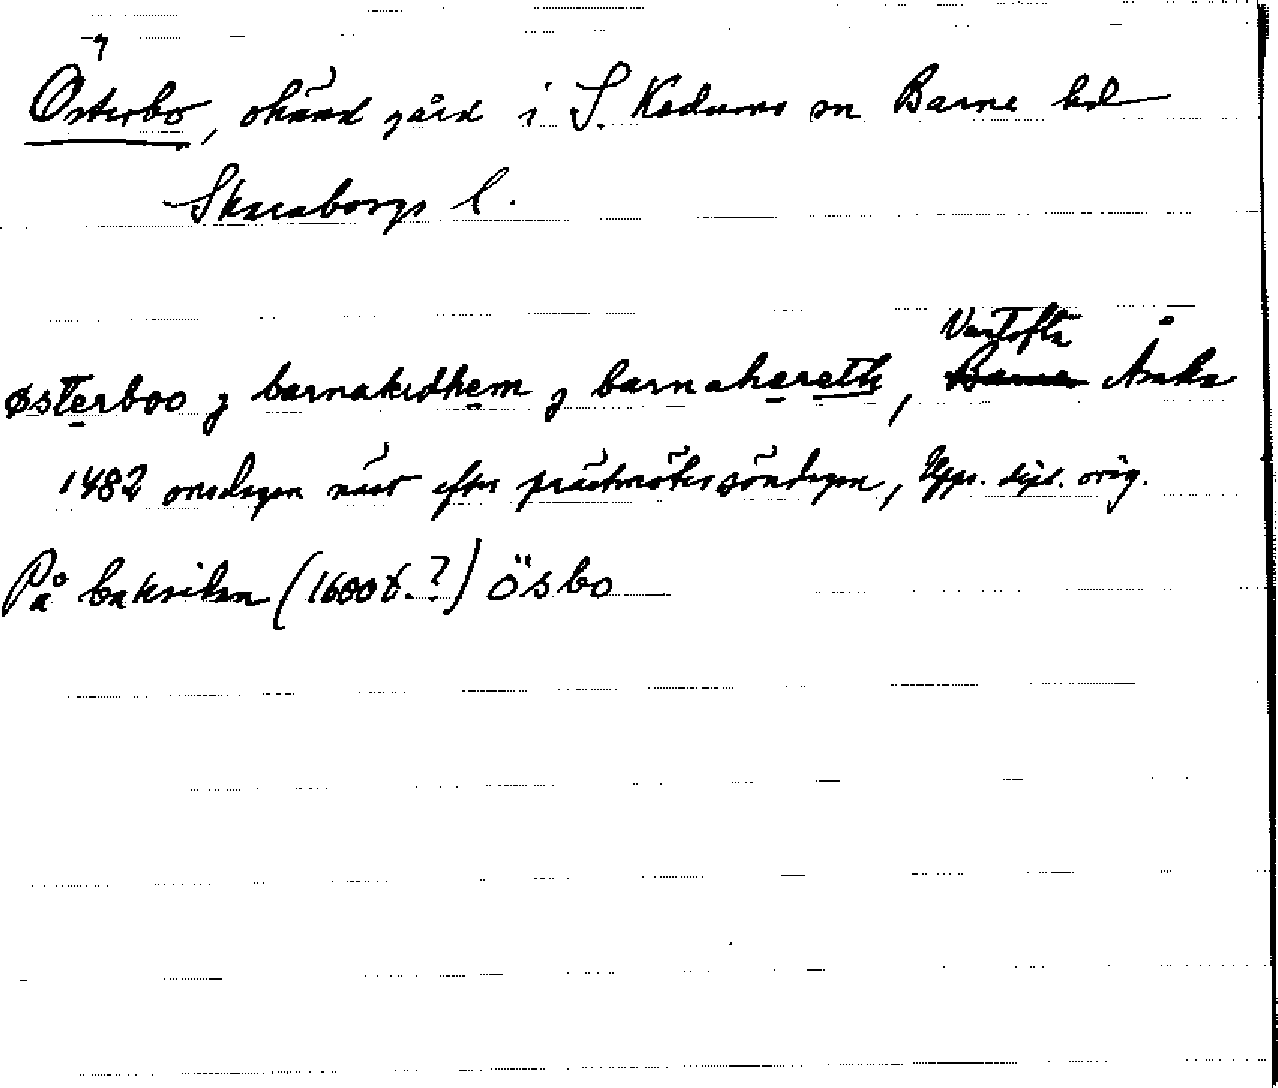 Österbo, okänd gård i S. Kedums sn Barne hd
Skaraborgs l.
østerboo j barnakidhem j barnahæreth, Vartofta Åsaka
1482 onsdagen näst efter prästmötessöndagen, Upps. dipl. orig.
På baksidan (1600t.?) Ösbo